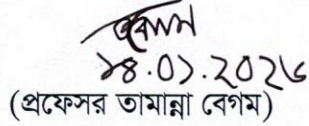 ১৪.০১.২০২৬
(প্রফেসর তামান্না বেগম)